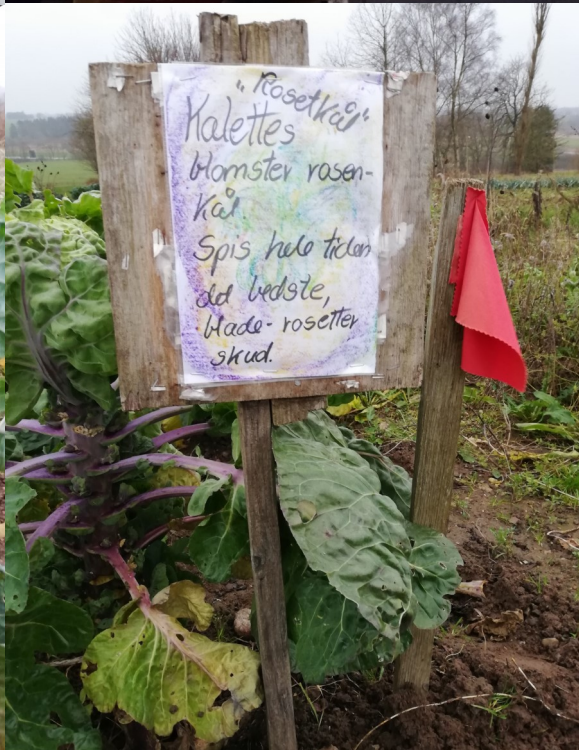 "Rosetkål"
Kalettes
blomster rosen-
kål
Spis hele tiden
det bedste,
blade-rosetter
skud.